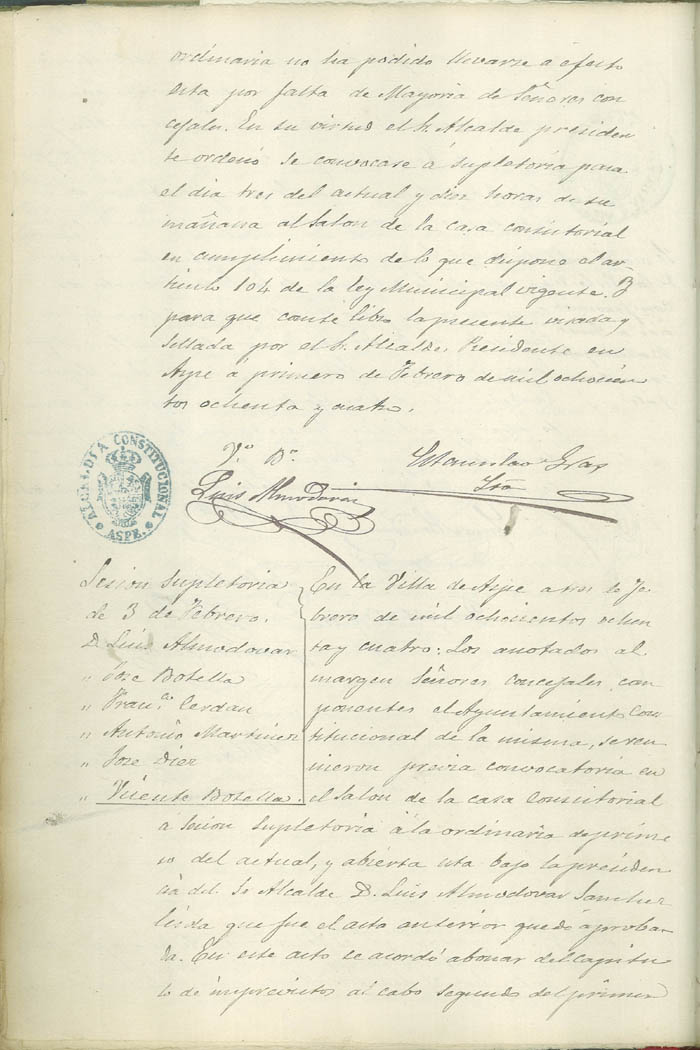 ordinaria no ha podido llevarse a efecto
esta por falta de Mayoria de Señores con
cejales. En su virtud el Sr. Alcalde presiden
te ordenó se convocase á supletoria para
el dia tres del actual y diez horas de su
mañana al Salon de la casa consistorial
en cumplimiento de lo que dispone el ar
ticulo 104 de la ley Municipal vigente. Y
para que conste libro la presente visada y
sellada por el Sr. Alcalde, Presidente en
Aspe a primero de Febrero de mil ochocien
tos ochenta y cuatro.
V.º B.º
Luis Almodovar
Estanislao Gras
Srio
ALCALDIA CONSTITUCIONAL
ASPE.
Sesion Supletoria
de 3 de Febrero.
D. Luis Almodovar
" Jose Botella
" Fran.co Cerdan
" Antonio Martinez
" Jose Diez
" Vicente Botella.
En la Villa de Aspe a tres de Fe
brero de mil ochocientos ochen
ta y cuatro: Los anotados al
margen Señores concejales com
ponentes el Ayuntamiento Cons
titucional de la misma, se reu
nieron previa convocatoria en
el Salon de la casa Consistorial
á Sesion Supletoria á la ordinaria de prime
ro del actual, y abierta esta bajo la presiden
cia del Sr Alcalde D. Luis Almodovar Sanchez
leida que fue el acta anterior quedó aproba
da. En este acto se acordó abonar del capitu
lo de imprevistos al cabo segundo del primer